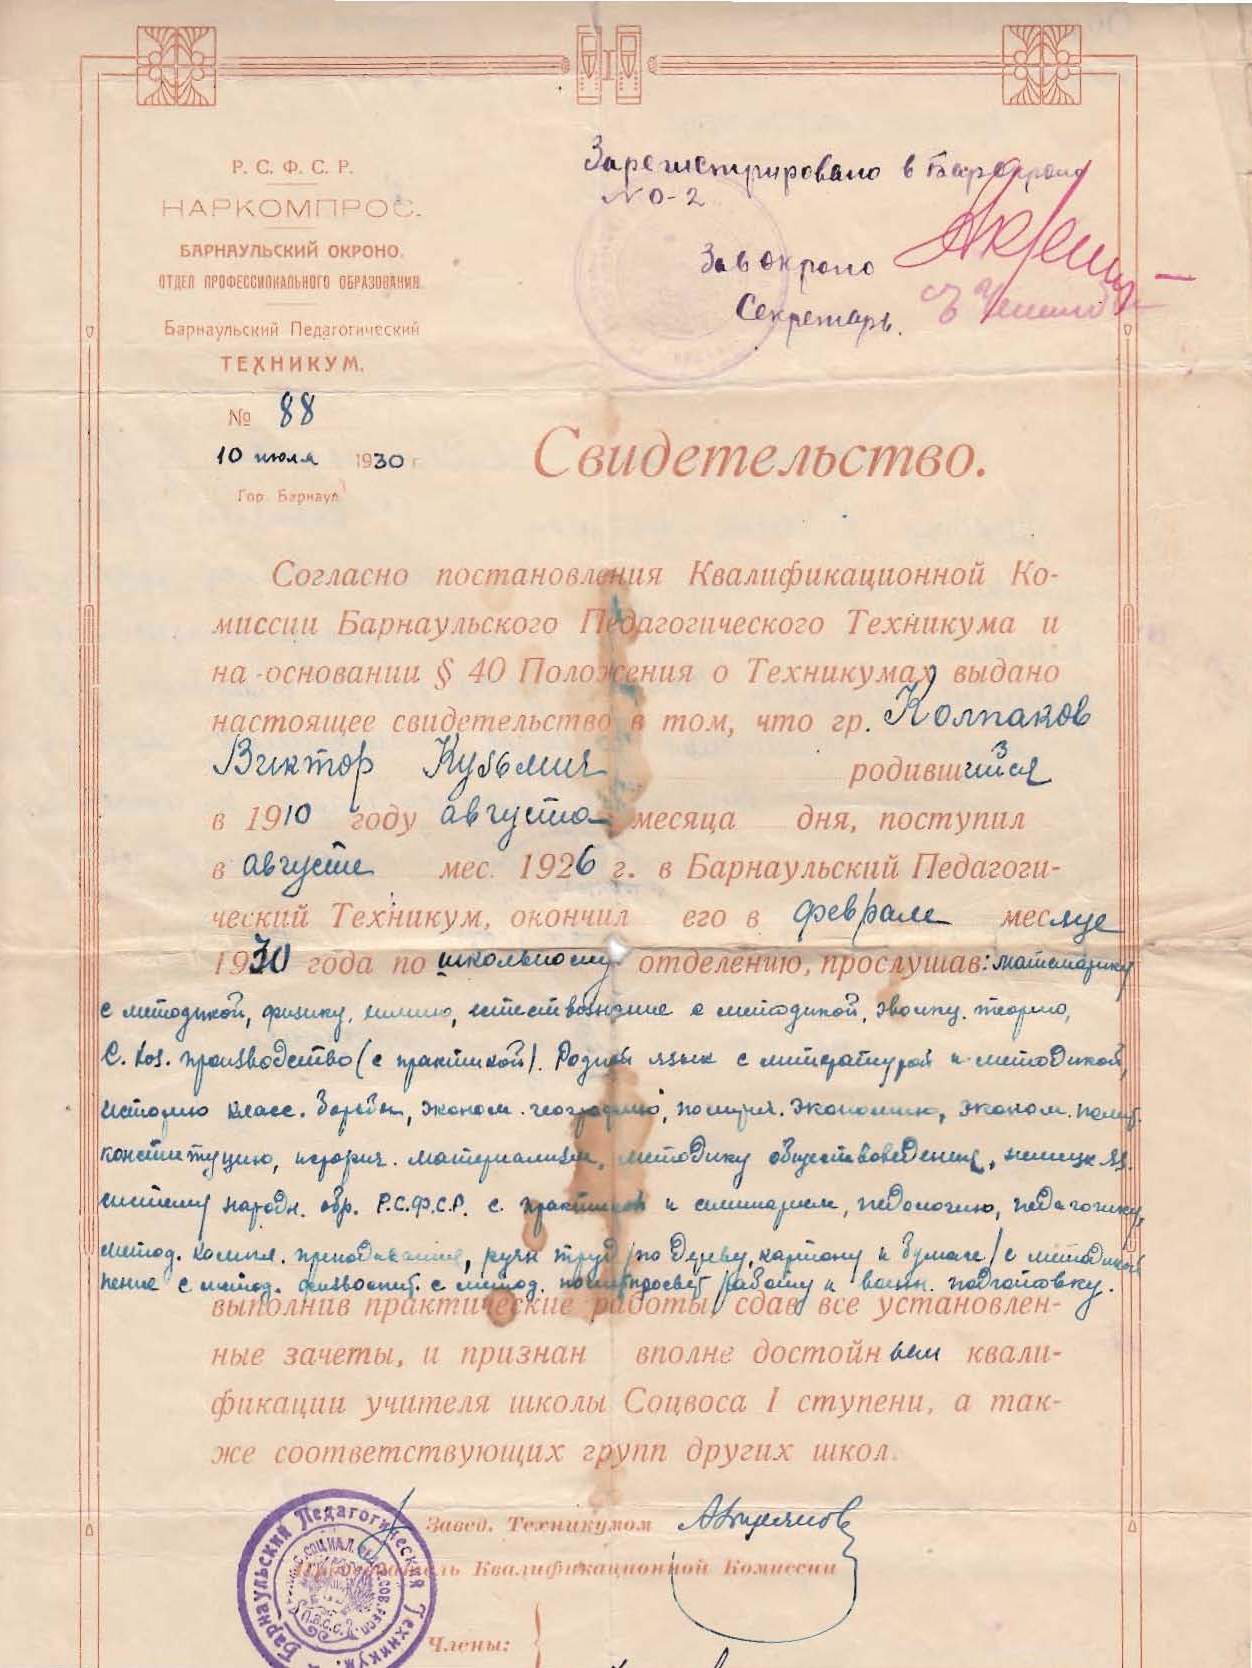 Р. С. Ф. С. Р.
НАРКОМПРОС.
БАРНАУЛЬСКИЙ ОКРОНО.
ОТДЕЛ ПРОФЕССИОНАЛЬНОГО ОБРАЗОВАНИЯ
Барнаульский Педагогический
ТЕХНИКУМ.
№ 88
10 июля 1930 г
Гор. Барнаул
Зарегистрировано в Барокроно
№ 0-2
Зав окроно
Секретарь.
Свидетельство.
Согласно постановления Квалификационной Ко-
миссии Барнаульского Педагогического Техникума и
на основании § 40 Положения о Техникумах выдано
настоящее свидетельство в том, что гр. Колпаков
Виктор Кузьмич родившийся
3
в 1910 году августа месяца дня, поступил
в августе мес. 1926 г. в Барнаульский Педагоги-
ческий Техникум, окончил его в феврале месяце
1930 года по школьному отделению, прослушав: математику
с методикой, физику, химию, естествознание с методикой, эволюц. теорию,
С. хоз. производство (с практикой). Родной язык с литературой и методикой,
историю класс. борьбы, эконом. географию, политич. экономию, эконом. полит.
конституцию, историч. материализм, методику обществоведения, немецк яз.
систему народн. обр. Р.С.Ф.С.Р. с практикой и семинарием, педологию, педагогику,
метод. компл. преподавания, ручн труд /по дереву, картону и бумаге/ с методикой
пение с метод. физвоспит. с метод. политпросвет работу и воен. подготовку.
выполнив практические работы, сдав все установлен-
ные зачеты, и признан вполне достойным квали-
фикации учителя школы Соцвоса I ступени, а так-
же соответствующих групп других школ.
Завед. Техникумом
Председатель Квалификационной Комиссии
Члены:
Барнаульский Педагогический Техникум.